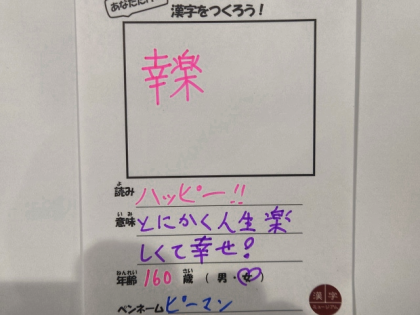 漢字をつくろう!
幸楽
読み ハッピー!!
意味 とにかく人生楽
しくて幸せ!
年齢 160 歳 (男・女)
ペンネーム ピーマン
漢字